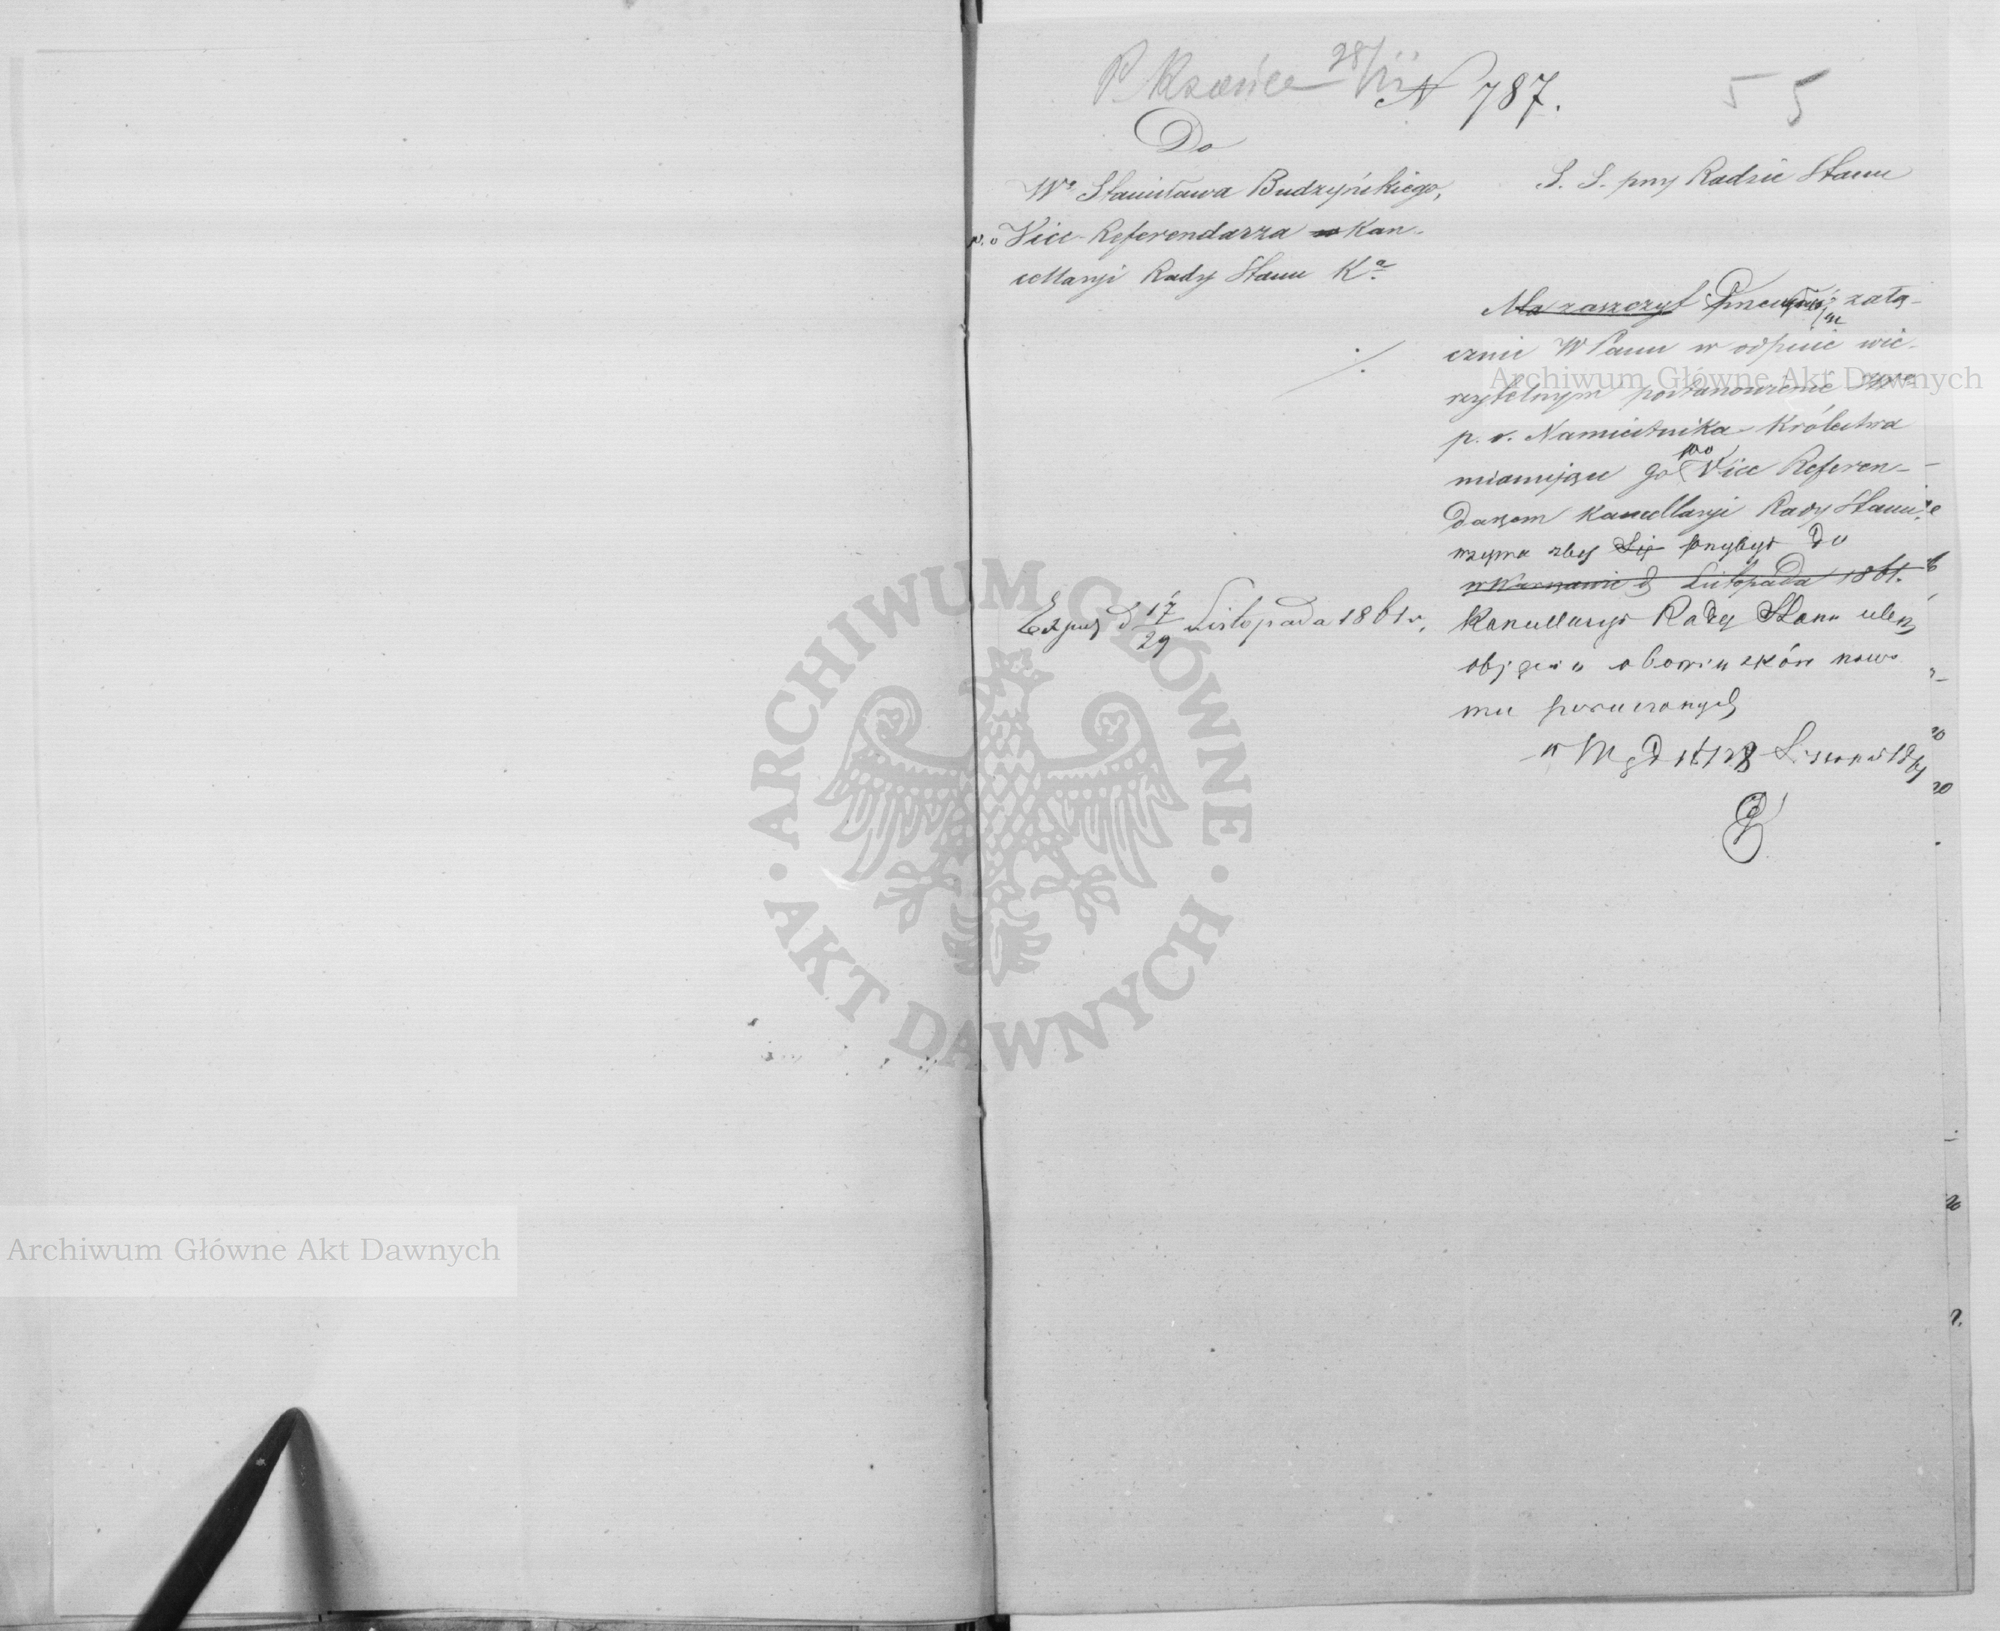 N 787.
5 5
Do
W° Stanisława Budzyńskiego,
p. o Vice-Referendarza Kan-
cellaryi Rady Stanu Kª
S. S. przy Radzie Stanu
Ma zaszczyt załą-
cznie WPanu w odpisie wie-
rzytelnym postanowienie
p. o. Namiestnika Królestwa
mianujące go po Vice Referen-
darzem Kancellaryi Rady Stanu
wzywa aby się przybył do
w Warszawie d Listopada 1861.
Kancellaryi Rady Stanu celem
objęcia obowiązków nowo
mu poruczonych
Exped d 17/29 Listopada 1861 r.
ARCHIWUM GŁÓWNE AKT DAWNYCH
Archiwum Główne Akt Dawnych
Archiwum Główne Akt Dawnych